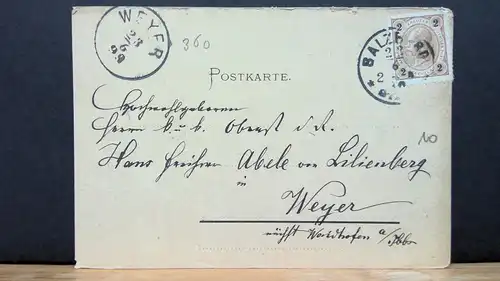 WEYER
23
6
99
360
BALZ
2
2
2
POSTKARTE.
Hochwohlgeboren
Herrn k. u. k. Oberst d. R.
Hans Freiherr Abele von Lilienberg
in
Weyer
nächst Waidhofen a/Ybbs
10